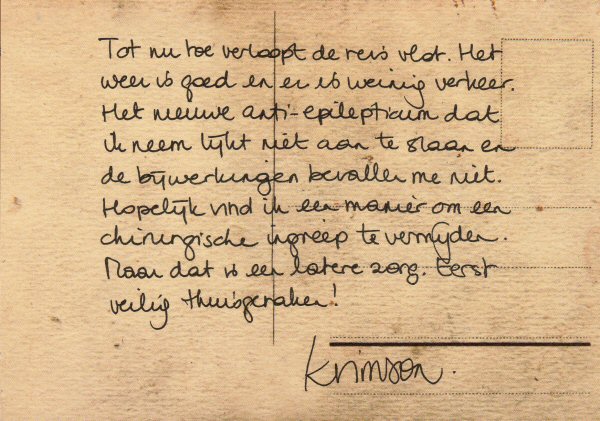 Tot nu toe verloopt de reis vlot. Het
weer is goed en er is weinig verkeer.
Het nieuwe anti-epilepticum dat
ik neem lijkt niet aan te slaan en
de bijwerkingen bevallen me niet.
Hopelijk vind ik een manier om een
chirurgische ingreep te vermijden.
Maar dat is een latere zorg. Eerst
veilig thuisgeraken!
Krimson.